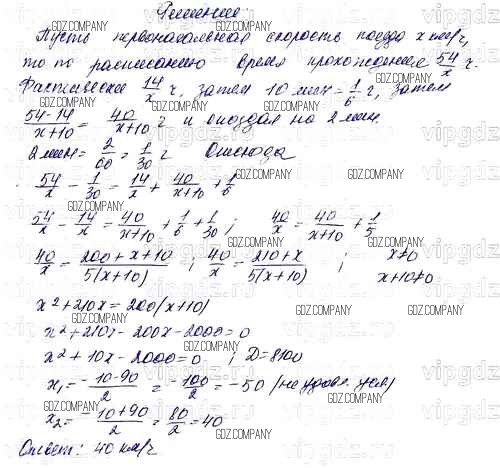 Решение:
Пусть первоначальная скорость поезда x км/ч,
то по расписанию время прохождения 54/x ч.
Фактически 14/x ч, затем 10 мин = 1/6 ч, затем
(54-14)/(x+10) = 40/(x+10) ч и опоздал на 2 мин
2 мин = 2/60 = 1/30 ч Отсюда
54/x - 1/30 = 14/x + 40/(x+10) + 1/6
54/x - 14/x = 40/(x+10) + 1/6 + 1/30 ; 40/x = 40/(x+10) + 1/5
40/x = (200+x+10)/(5(x+10)) ; 40/x = (210+x)/(5(x+10)) ; x≠0
x+10≠0
x²+210x = 200(x+10)
x²+210x-200x-2000=0
x²+10x-2000=0 ; D=8100
x₁ = (-10-90)/2 = -100/2 = -50 (не удовл. усл)
x₂ = (-10+90)/2 = 80/2 = 40
Ответ: 40 км/ч
GDZ.COMPANY
vipgdz